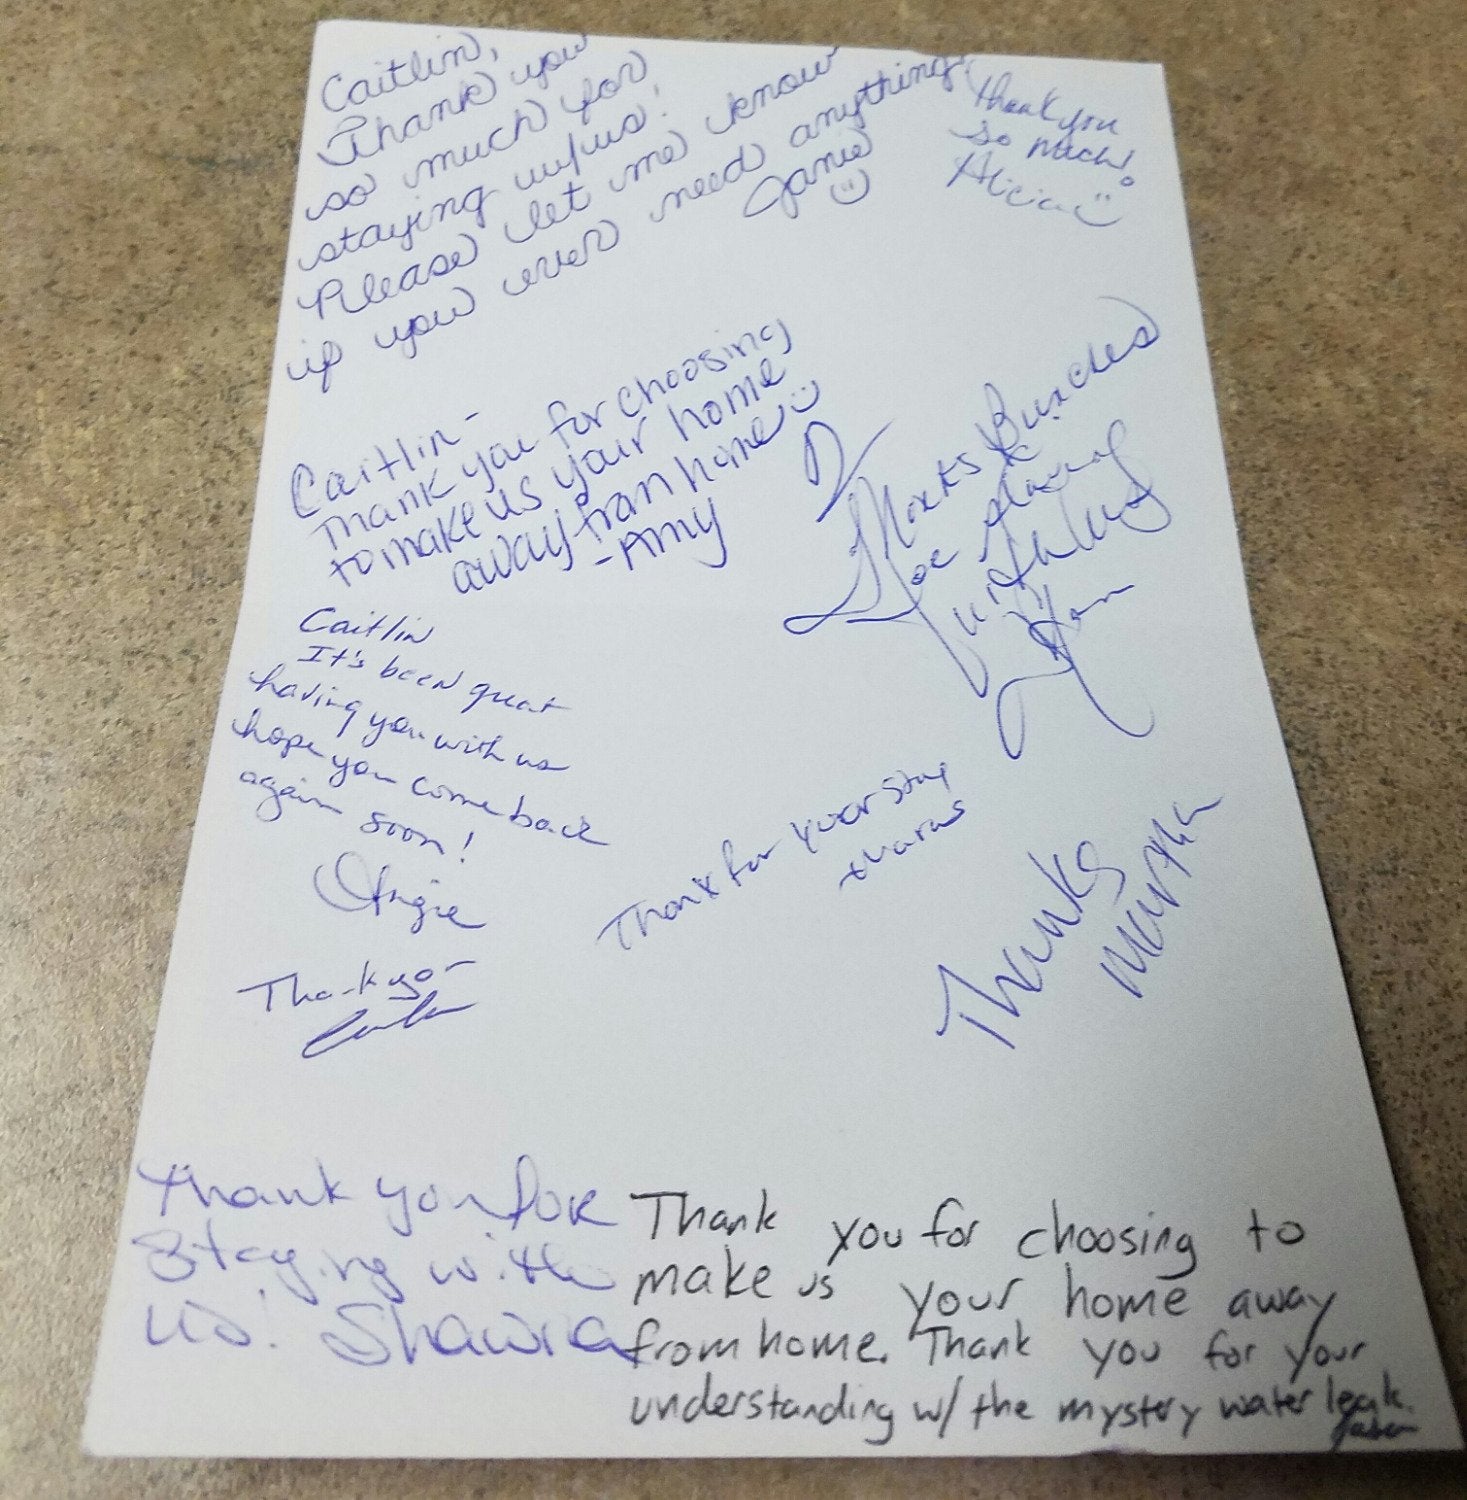 Caitlin,
Thank you
so much for
staying w/us!
Please let me know
if you ever need anything!
Janie
Thank you
so much!
Alicia
Caitlin-
Thank you for choosing
to make us your home
away from home
-Amy
Thanks Bunches
for staying
with us
Caitlin
It's been great
having you with us
hope you come back
again soon!
Angie
Thank for your stay
Thanks
Martha
Thank you
Thank you for
Staying with
us! Shawna
Thank you for choosing to
make us your home away
from home. Thank you for your
understanding w/ the mystery water leak.
Jason